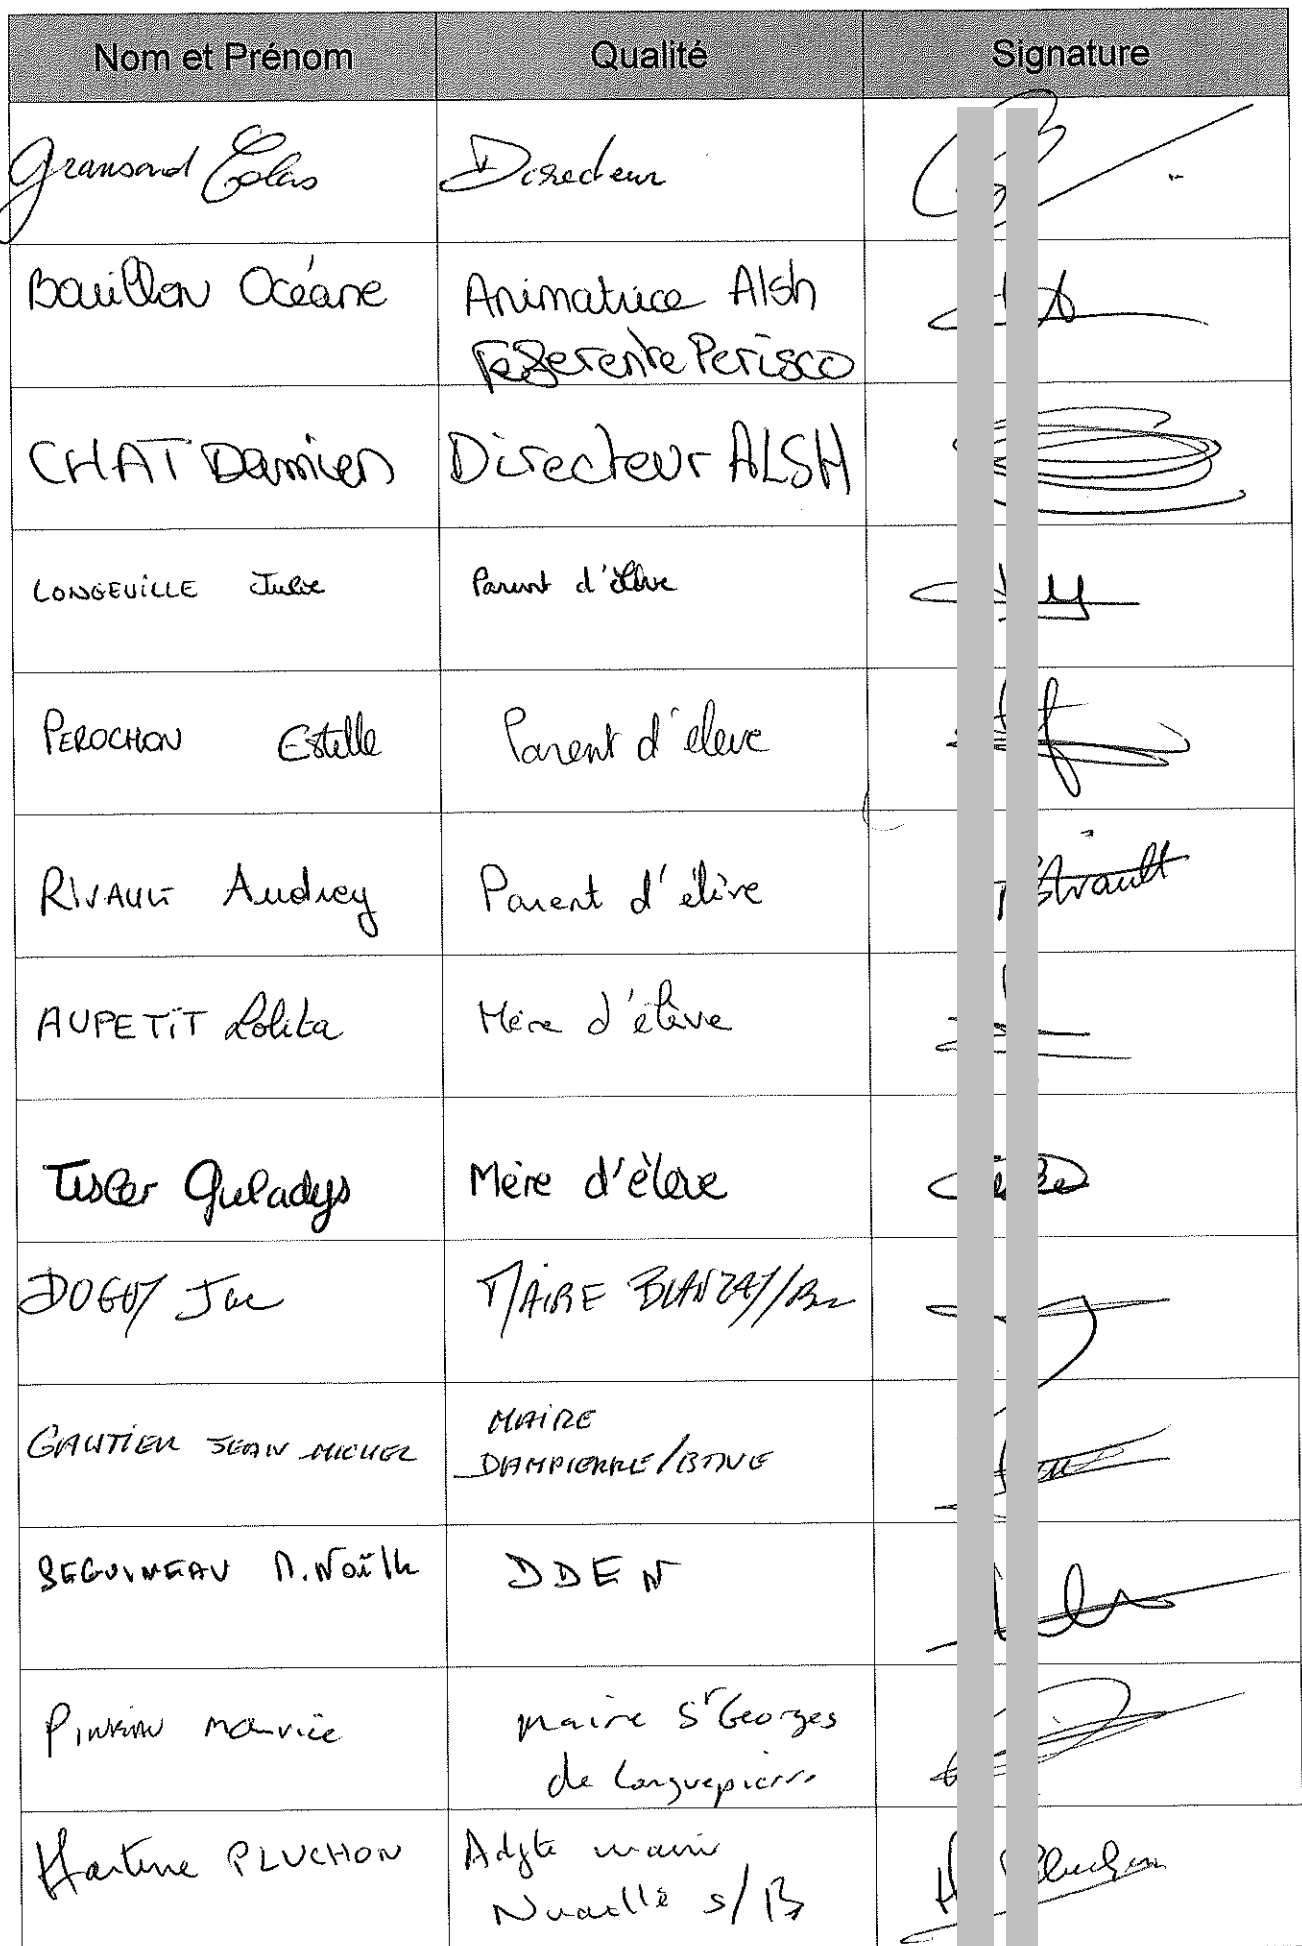 Nom et Prénom Qualité Signature
Gransard Colas Directeur
Bouillon Océane Animatrice Alsh
référente Perisco
CHAT Damien Directeur ALSH
LONGEVILLE Julie Parent d'élève
PEROCHON Estelle Parent d'éleve
RIVAULT Audrey Parent d'élève
Rivault
AUPETIT Lolita Mère d'élève
Tesler Gwladys Mère d'élève
DOGUY MAIRE BLANZAY/B
GAUTIER JEAN MICHEL MAIRE
DAMPIERRE/BTNE
SEGUINEAU M.Noëlle DDEN
PINEAU Maurice maire St Georges
de Longuepierre
Martine PLUCHON Adjte maire
Nuaillé s/B
Pluchon